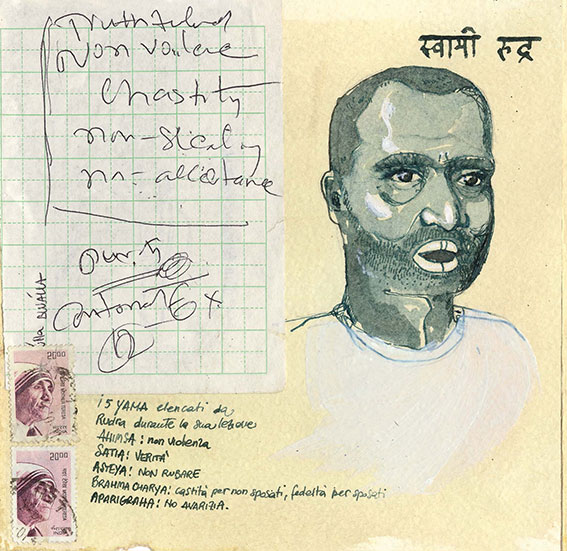 Truthfulnes
Non voilence
chastity
non-stealing
non-acceptance
purity
स्वामी रुद्र
20.00
20.00
i 5 YAMA elencati da
Rudra durante la sua lezione
AHIMSA: non violenza
SATIA: VERITÀ
ASTEYA: NON RUBARE
BRAHMA CHARYA: castità per non sposati, fedeltà per sposati
APARIGRAHA: NO AVARIZIA.